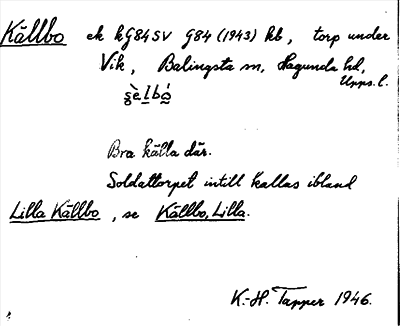 Källbo ek kG84SV G84 (1943) kb, torp under
Vik, Balingsta sn, Hagunda hd,
Upps. l.
s̯èlbó̤
Bra källa där.
Soldattorpet intill kallas ibland
Lilla Källbo, se Källbo, Lilla.
K.-H. Tapper 1946.